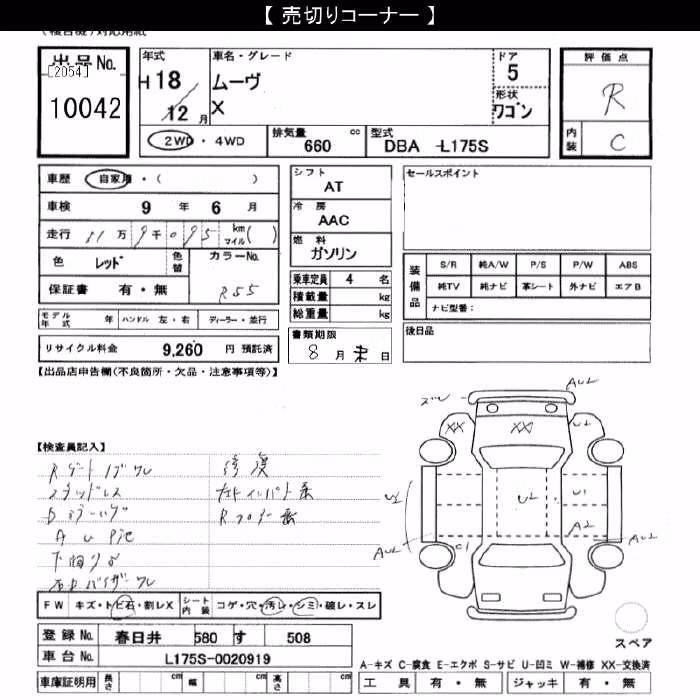 【 売切りコーナー 】
出品No.
[2054]
10042
年式
H 18
12 月
車名・グレード
ムーヴ
X
ドア
5
形状
ワゴン
2WD・4WD
排気量
660 cc
型式
DBA -L175S
評価点
R
内装
C
車歴 自家用・( )
車検 9 年 6 月
走行 11万 9千095 km マイル( )
色 レッド 色替
カラーNo.
R55
保証書 有・無
モデル年式 年 ハンドル 左・右 ディーラー・並行
リサイクル料金 9,260 円 預託済
シフト
AT
冷房
AAC
燃料
ガソリン
乗車定員 4 名
積載量 kg
総重量 kg
書類期限
8 月 末 日
セールスポイント
装備品
S/R 純A/W P/S P/W ABS
純TV 純ナビ 革シート 外ナビ エアB
ナビ型番:
後日品
【出品店申告欄(不良箇所・欠品・注意事項等)】
【検査員記入】
修復
スタッドレス
FW キズ・トビ石・割レX
シート内装 コゲ・穴・汚レ・シミ・破レ・スレ
登録No. 春日井 580 す 508
車台No. L175S-0020919
車庫証明用 長さ cm 幅 cm 高さ cm
AU2
XX
XX
U2
U2
U2
U1
A2
AU2
AU2
C1
スペア
A-キズ C-腐食 E-エクボ S-サビ U-凹ミ W-補修 XX-交換済
工具 有・無 ジャッキ 有・無